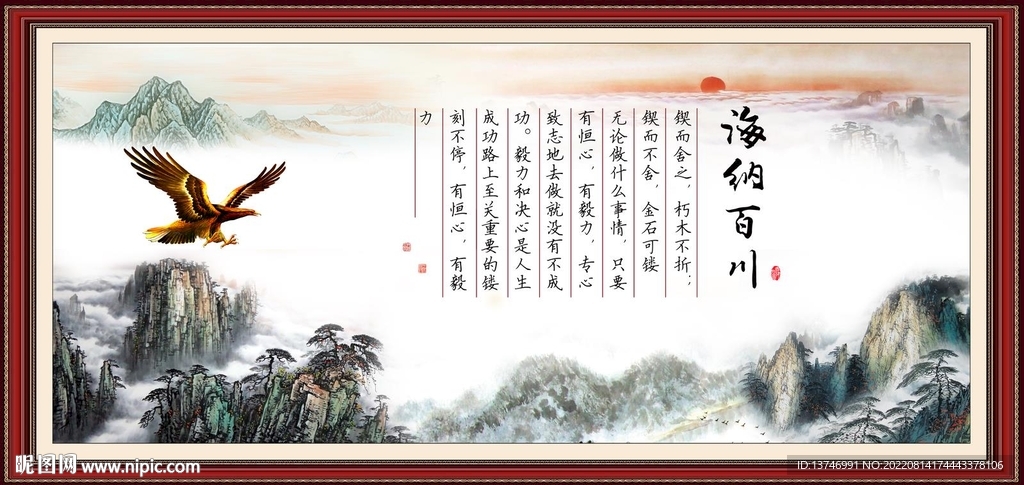 海纳百川
锲而舍之，朽木不折；
锲而不舍，金石可镂
无论做什么事情，只要
有恒心，有毅力，专心
致志地去做就没有不成
功。毅力和决心是人生
成功路上至关重要的镂
刻不停，有恒心，有毅
力
昵图网 www.nipic.com
ID:13746991 NO:20220814174443378106